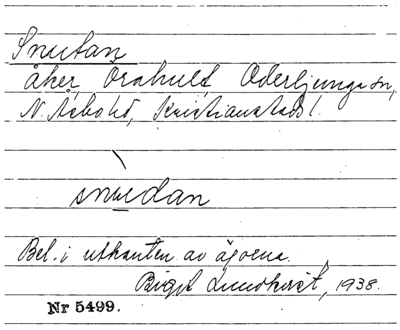 Snutan
åker, Örahult Oderljunga sn,
N. Åsbo hd, Kristianstads l.
snudan
Bel. i utkanten av ägorna.
Birgit Lundkvist, 1938.
Nr 5499.